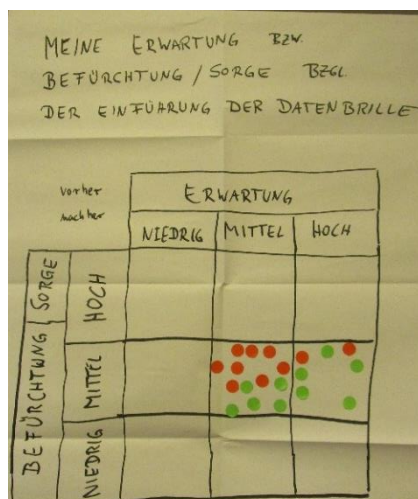 MEINE ERWARTUNG BZW.
BEFÜRCHTUNG / SORGE BZGL.
DER EINFÜHRUNG DER DATENBRILLE
vorher
nachher
ERWARTUNG
NIEDRIG MITTEL HOCH
BEFÜRCHTUNG / SORGE
HOCH
MITTEL
NIEDRIG